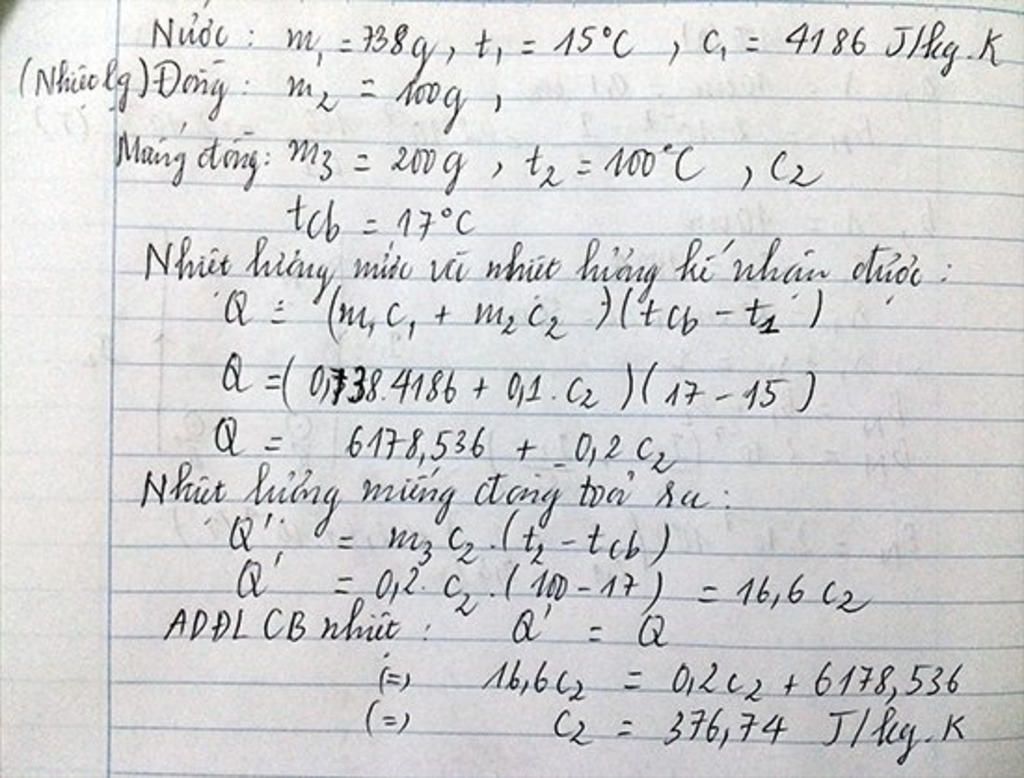 Nước : m₁ = 738g , t₁ = 15°C , c₁ = 4186 J/kg.K
(Nhiệt lg) Đồng : m₂ = 100g ,
Miếng đồng : m₃ = 200g , t₂ = 100°C , c₂
tcb = 17°C
Nhiệt lượng nước và nhiệt lượng kế nhận được :
Q = (m₁c₁ + m₂c₂)(tcb - t₁)
Q = (0,738.4186 + 0,1.c₂)(17 - 15)
Q = 6178,536 + 0,2c₂
Nhiệt lượng miếng đồng toả ra :
Q' = m₃c₂.(t₂ - tcb)
Q' = 0,2.c₂.(100 - 17) = 16,6c₂
ADĐL CB nhiệt : Q' = Q
(=) 16,6c₂ = 0,2c₂ + 6178,536
(=) c₂ = 376,74 J/kg.K